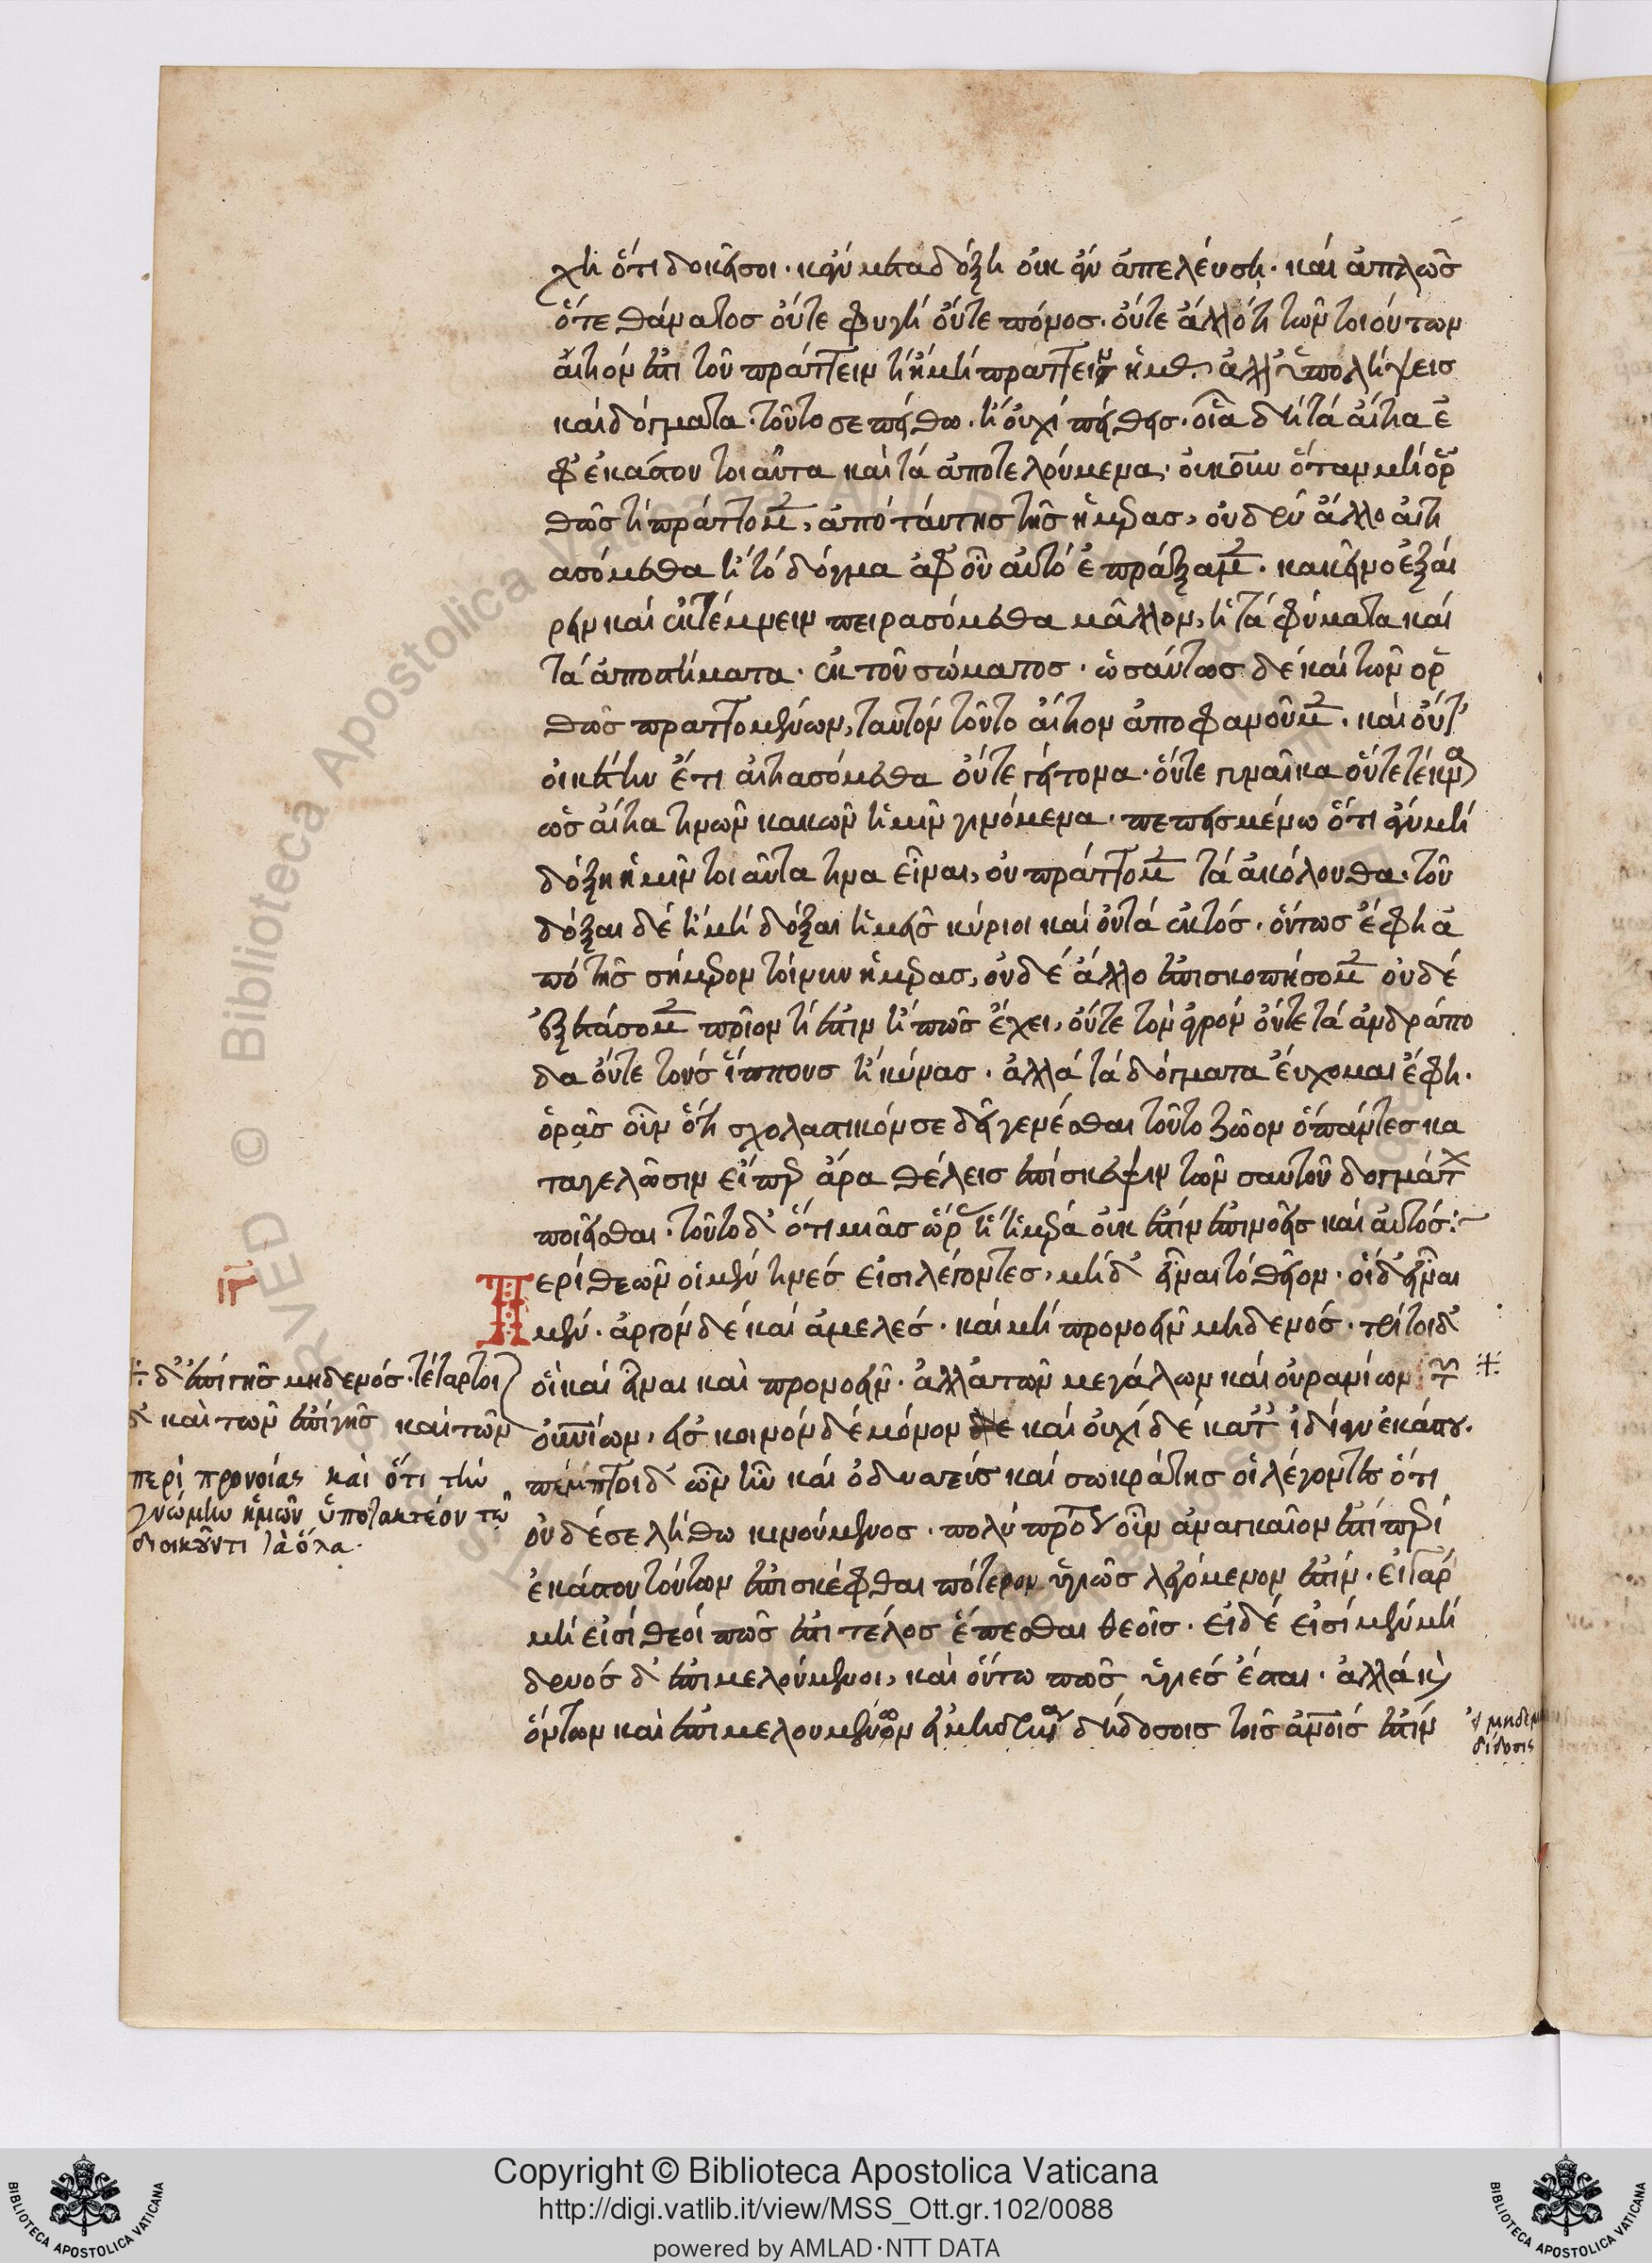 χη ὅτι δοκεῖ σοι· κἂν μεταδόξη οὐκ ἂν ἀπελεύση· καὶ ἁπλῶς
οὔτε θάνατος οὔτε φυγὴ οὔτε πόνος· οὔτε ἄλλό τι τῶν τοιούτων
αἴτιόν ἐστι τοῦ πράττειν τὶ ἢ μὴ πράττειν ἡμᾶς, ἀλλ' ὑπολήψεις
καὶ δόγματα· τοῦτό σε πείθω· ἢ οὐχὶ πείθεις· οἷα δὴ τὰ αἴτια ἐ
φ' ἑκάστου τοιαῦτα καὶ τὰ ἀποτελούμενα· οὐκοῦν ὅταν μὴ ὀρ
θῶς τὶ πράττομεν, ἀπὸ ταύτης τῆς ἡμέρας, οὐδὲν ἄλλο αἰτι
ασόμεθα ἢ τὸ δόγμα ἀφ' οὗ αὐτὸ ἐπράξαμεν· κἀκεῖνο ἐξαί
ρειν καὶ ἐκτέμνειν πειρασόμεθα μᾶλλον, ἢ τὰ φύματα καὶ
τὰ ἀποστήματα· ἐκ τοῦ σώματος· ὡσαύτως δὲ καὶ τῶν ὀρ
θῶς πραττομένων, ταυτὸν τοῦτο αἴτιον ἀποφανοῦμεν· καὶ οὔτ'
οἰκέτην ἔτι αἰτιασόμεθα οὔτε γείτονα· οὔτε γυναῖκα οὔτε τέκνα
ὡς αἴτιά τινων κακῶν ἡμῖν γινόμενα· πεπεισμένω ὅτι ἂν μὴ
δόξη ἡμῖν τοιαῦτά τινα εἶναι, οὐ πράττομεν τὰ ἀκόλουθα· τοῦ
δόξαι δὲ ἢ μὴ δόξαι ἡμεῖς κύριοι καὶ οὐ τὰ ἐκτός· οὕτως ἔφη ἀ
πὸ τῆς σήμερον τοίνυν ἡμέρας, οὐδὲ ἄλλο ἐπισκοπήσομεν οὐδὲ
ἐξετάσομεν ποῖόν τί ἐστιν ἢ πῶς ἔχει, οὔτε τὸν ἀγρὸν οὔτε τὰ ἀνδράπο
δα οὔτε τοὺς ἵππους ἢ κύνας· ἀλλὰ τὰ δόγματα εὔχομαι ἔφη·
ὁρᾷς οὖν ὅτι σχολαστικόν σε δεῖ γενέσθαι τοῦτο ζῶον ὃ πάντες κα
ταγελῶσιν εἴπερ ἄρα θέλεις ἐπίσκεψιν τῶν σαυτοῦ δογμάτ
ποιεῖσθαι· τοῦτο δ' ὅτι μιᾶς ὥρας ἢ ἡμέρα οὐκ ἔστιν ἐπινοεῖς καὶ αὐτός:
ιγ
Περὶ θεῶν οἱ μέν τινές εἰσι λέγοντες, μὴ δ' εἶναι τὸ θεῖον· οἱ δ' εἶναι
μέν· ἀργὸν δὲ καὶ ἀμελές· καὶ μὴ προνοεῖν μηδενός· τρίτοι δ'
οἱ καὶ εἶναι καὶ προνοεῖν· ἀλλὰ τῶν μεγάλων καὶ οὐρανίων τῶν
÷ δ' ἐπὶ γῆς μηδενός· τέταρτοι
δ' καὶ τῶν ἐπὶ γῆς καὶ τῶν
οὐνίων, εἰς κοινὸν δὲ μόνον δε καὶ οὐχὶ δὲ κατ' ἰδίαν ἑκάστου·
περὶ προνοίας καὶ ὅτι τὴν
γνώμην ἡμῶν ὑποτακτέον τῷ
διοικοῦντι τὰ ὅλα·
πέμπτοι δ' ὧν ἦν καὶ ὀδυσσεὺς καὶ σωκράτης οἱ λέγοντες ὅτι
οὐδέ σε λήθω κινούμενος· πολὺ πρότερον οὖν ἀναγκαῖόν ἐστι περὶ
ἑκάστου τούτων ἐπισκέφθαι πότερον ὑγιῶς λεγόμενόν ἐστιν· εἰ γὰρ
μὴ εἰσὶ θεοὶ πῶς ἐστι τέλος ἕπεσθαι θεοῖς· εἰ δὲ εἰσὶ μὲν μη
δενὸς δ' ἐπιμελούμενοι, καὶ οὕτω πῶς ὑγιὲς ἔσται· ἀλλὰ καὶ
ὄντων καὶ ἐπιμελουμένων εἰ μὴ διάδοσις τοῖς ἀνοις ἐστίν
διδοσις